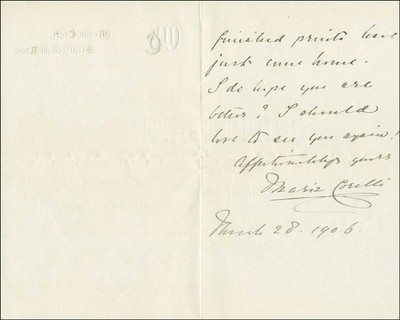 finished prints have
just come home.
I do hope you are
better? I should
love to see you again!
Affectionately yours
Marie Corelli
March 28. 1906.